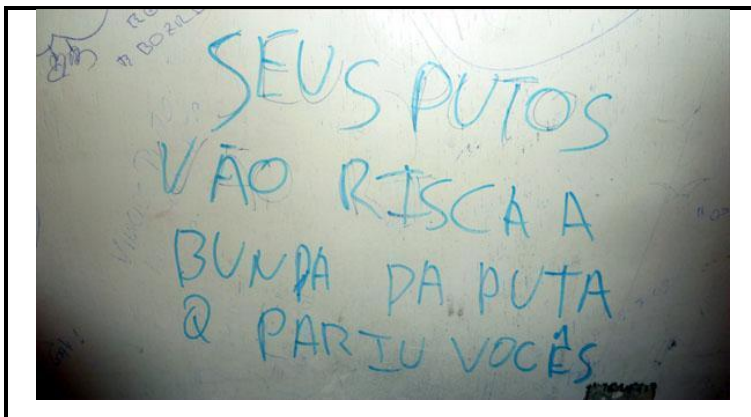 SEUS PUTOS
VÃO RISCA A
BUNDA DA PUTA
Q PARIU VOCÊS